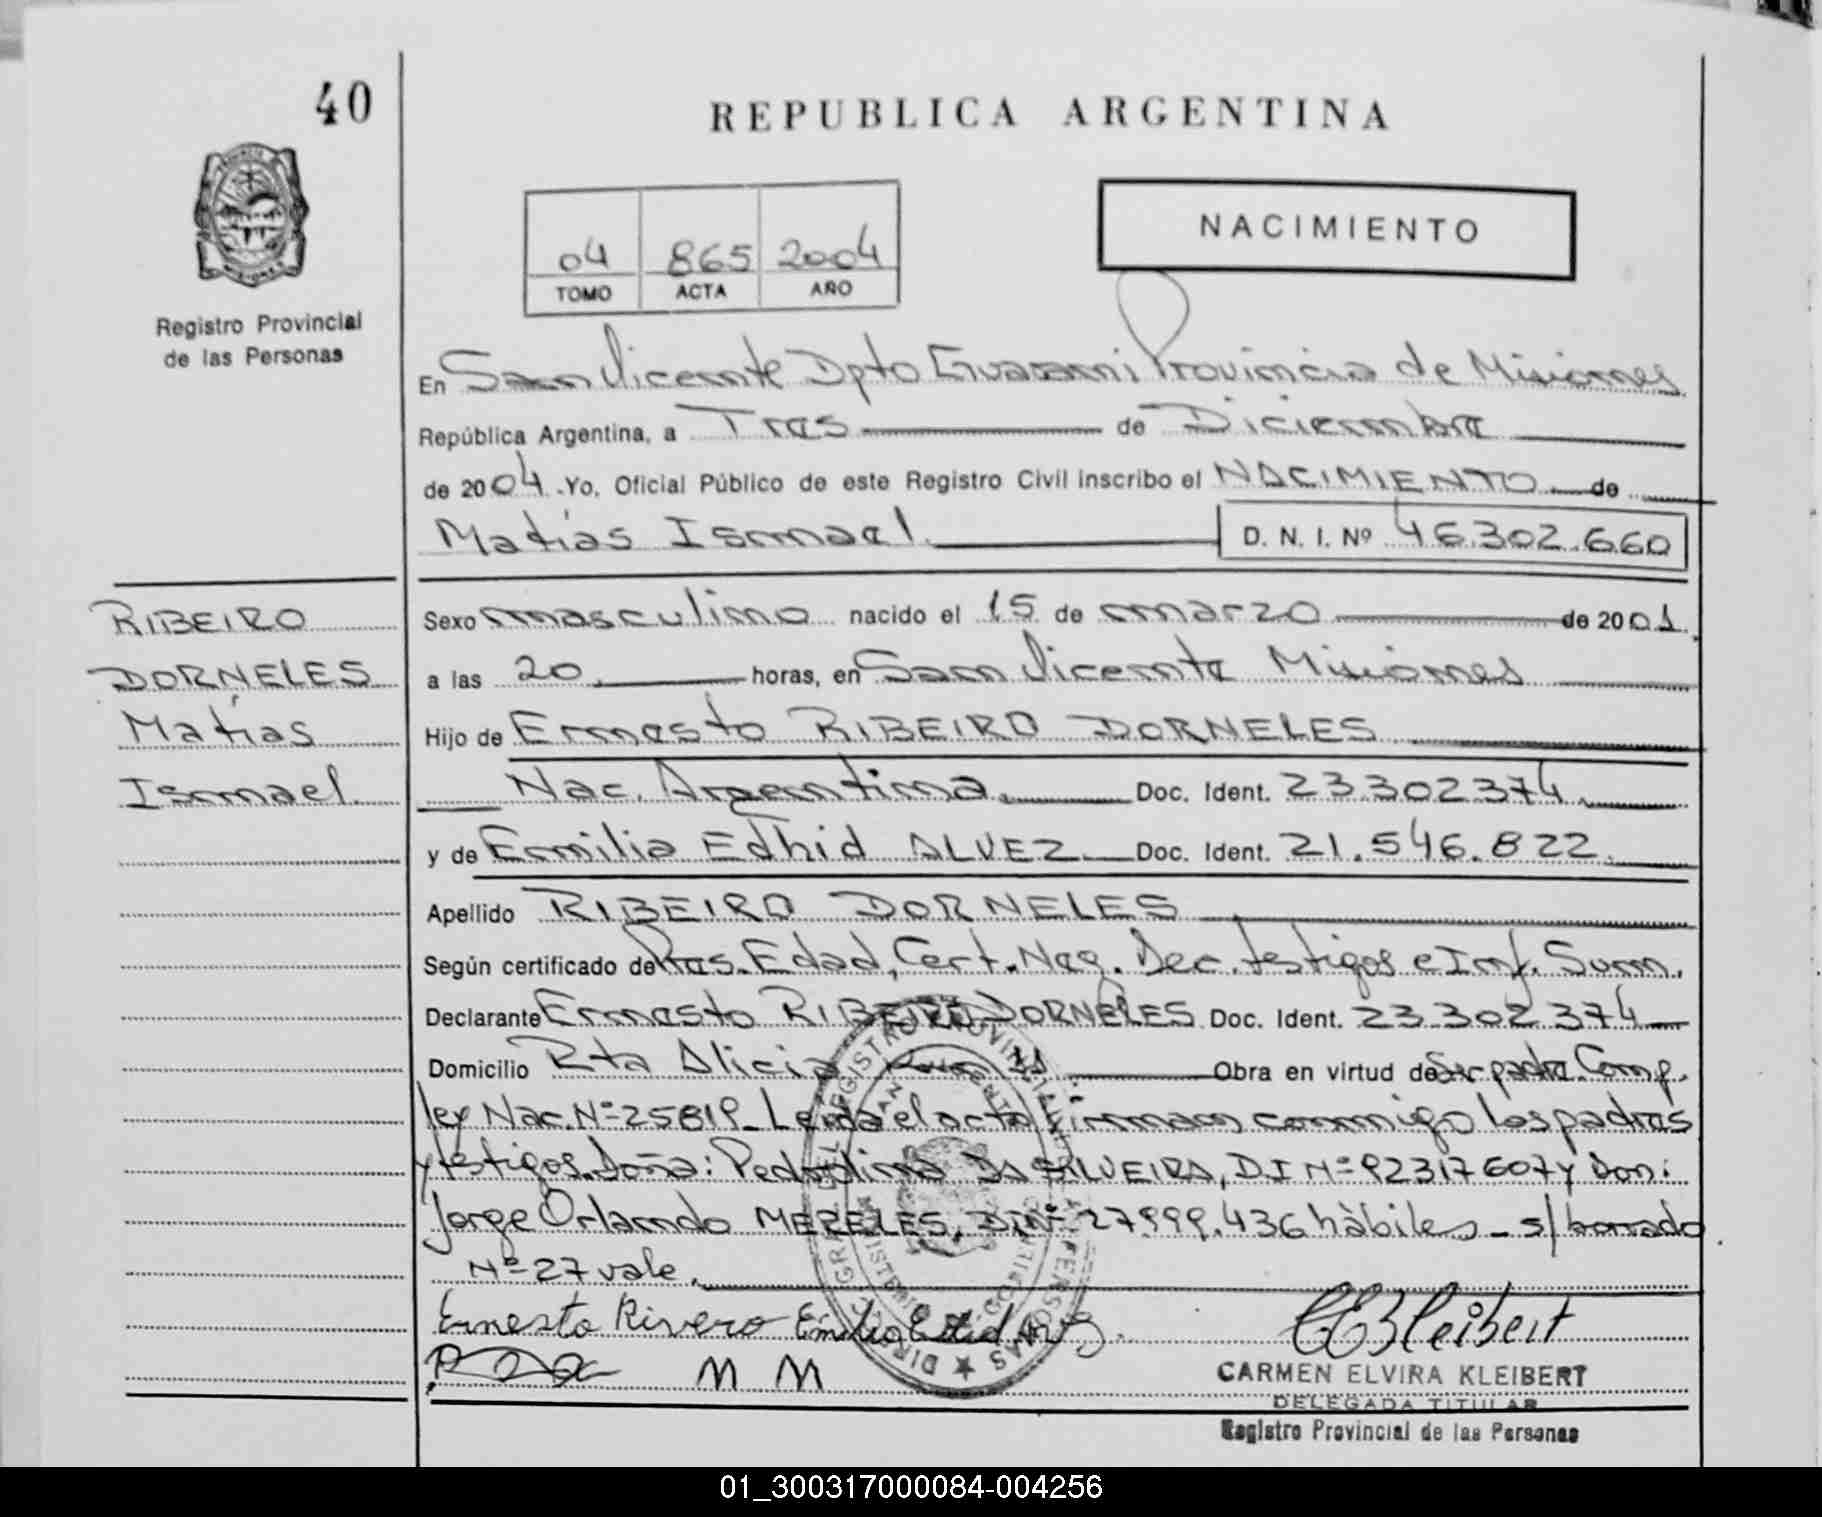 40
REPUBLICA ARGENTINA
04 865 2004
TOMO ACTA AÑO
NACIMIENTO
Registro Provincial
de las Personas
En San Vicente Dpto Guarani Provincia de Misiones
República Argentina, a Tres de Diciembre
de 2004 .Yo, Oficial Público de este Registro Civil inscribo el NACIMIENTO de
Matías Ismael D. N. I. Nº 46.302.660
RIBEIRO
DORNELES
Matías
Ismael
Sexo masculino nacido el 15 de marzo de 2001
a las 20 horas, en San Vicente Misiones
Hijo de Ernesto RIBEIRO DORNELES
Nac. Argentina. Doc. Ident. 23.302374
y de Emilia Edhid ALVEZ Doc. Ident. 21.546.822
Apellido RIBEIRO DORNELES
Según certificado de Pres. Edad, Cert. Neg. Dec. testigos e Inf. Sum.
Declarante Ernesto RIBEIRO DORNELES Doc. Ident. 23.302.374
Domicilio Rta Alicia Obra en virtud de Ser padre. Comp.
ley Nac. Nº 25819_ Leida el acta firman conmigo los padres
y testigos. Doña: Pedrolina DA SILVEIRA, D.I Nº 92317607 y Don:
Jorge Orlando MERELES, DI Nº 27.999.436 hàbiles _ s/ borrado
Nº 27 vale.
Ernesto Rivero Emilia Edid
M M
CEKleibert
CARMEN ELVIRA KLEIBERT
DELEGADA TITULAR
Registro Provincial de las Personas
01_300317000084-004256